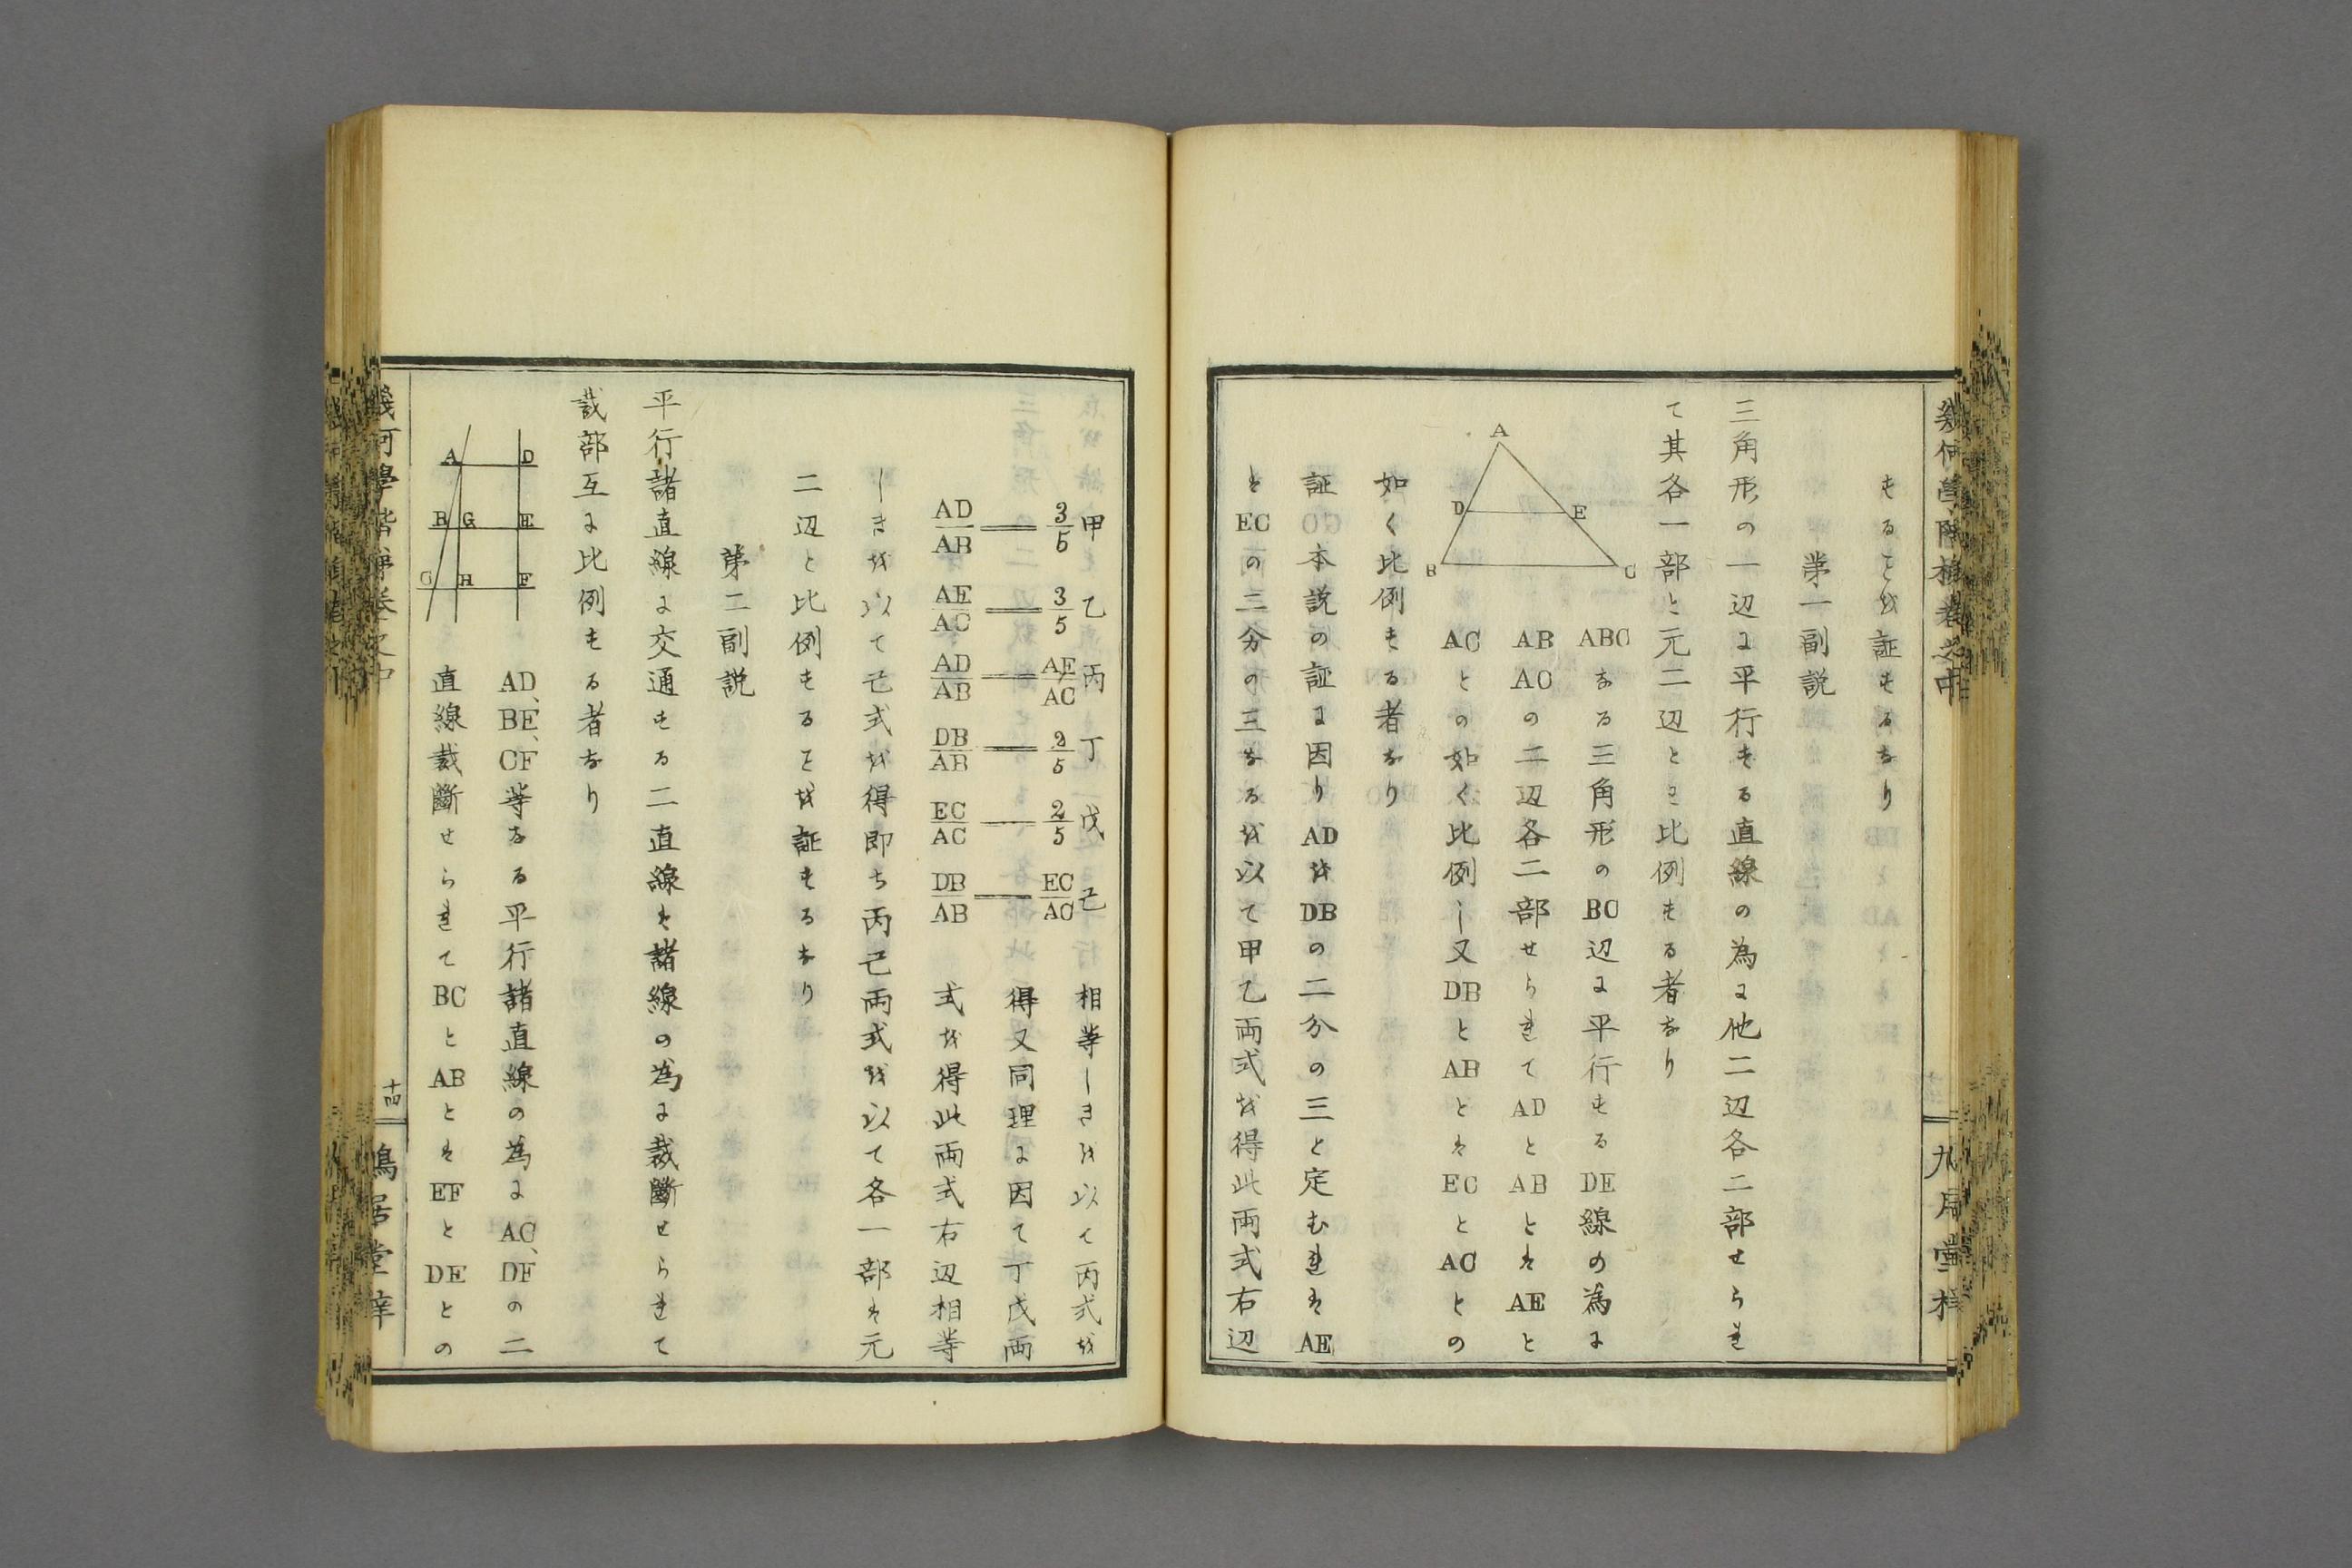 もることを証もるなり
第一副説
三角形の一辺に平行もる直線の為に他二辺各二部せられ
て其各一部と元二辺とは比例もる者なり
A
D
E
B
C
ABCなる三角形のBC辺に平行もるDE線の為に
AB ACの二辺各二部せられてADとABとはAEと
ACとの如く比例し又DBとABとはECとACとの
如く比例もる者なり
証 本説の証に因りADをDBの二分の三と定むればAE
はECの二分の三なるを以て甲乙両式を得此両式右辺
甲 AD/AB = 3/5
乙 AE/AC = 3/5
丙 AD/AB = AE/AC
丁 DB/AB = 2/5
戊 EC/AC = 2/5
己 DB/AB = EC/AC
相等しきを以て丙式を
得又同理に因て丁戊両
式を得此両式右辺相等
しきを以て己式を得即ち丙己両式を以て各一部は元
二辺と比例もるを証もるなり
第二副説
平行諸直線に交通もる二直線は諸線の為に裁斷せられて
裁部互に比例もる者なり
A D
B G E
C H F
AD、BE、CF等なる平行諸直線の為にAC、DFの二
直線裁斷せられてBCとABとはEFとDEとの
十四